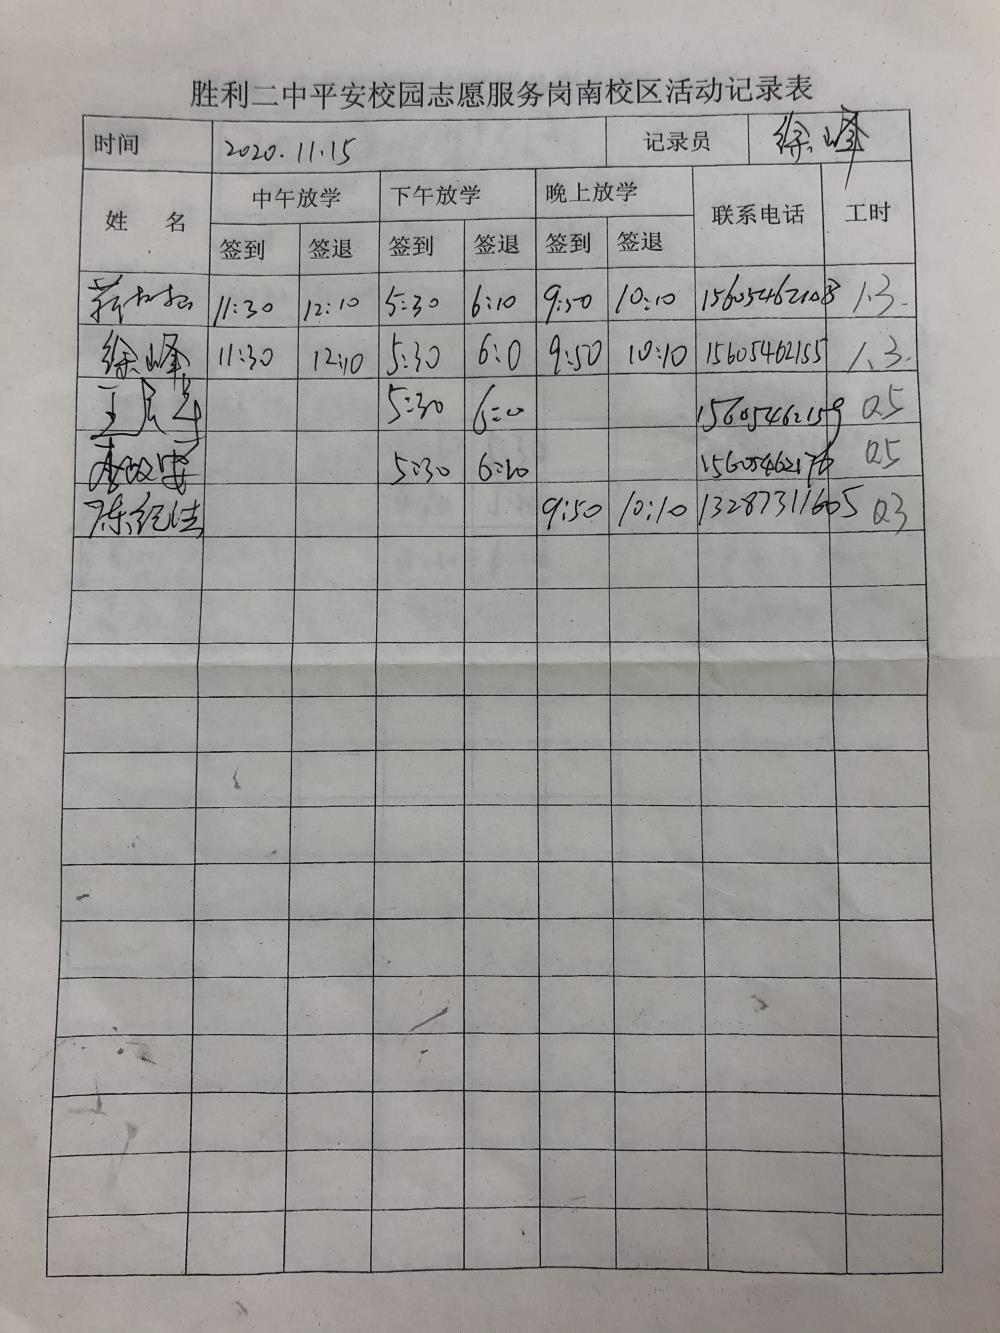 胜利二中平安校园志愿服务岗南校区活动记录表
时间 2020.11.15 记录员 徐峰
姓 名 中午放学 下午放学 晚上放学 联系电话 工时
签到 签退 签到 签退 签到 签退
11:30 12:10 5:30 6:10 9:50 10:10 15605462108 1.3.
徐峰 11:30 12:10 5:30 6:0 9:50 10:10 15605462155 1.3.
5:30 15605462159 0.5
5:30 6:10 0.5
陈纪洁 9:50 10:10 13287311605 0.3